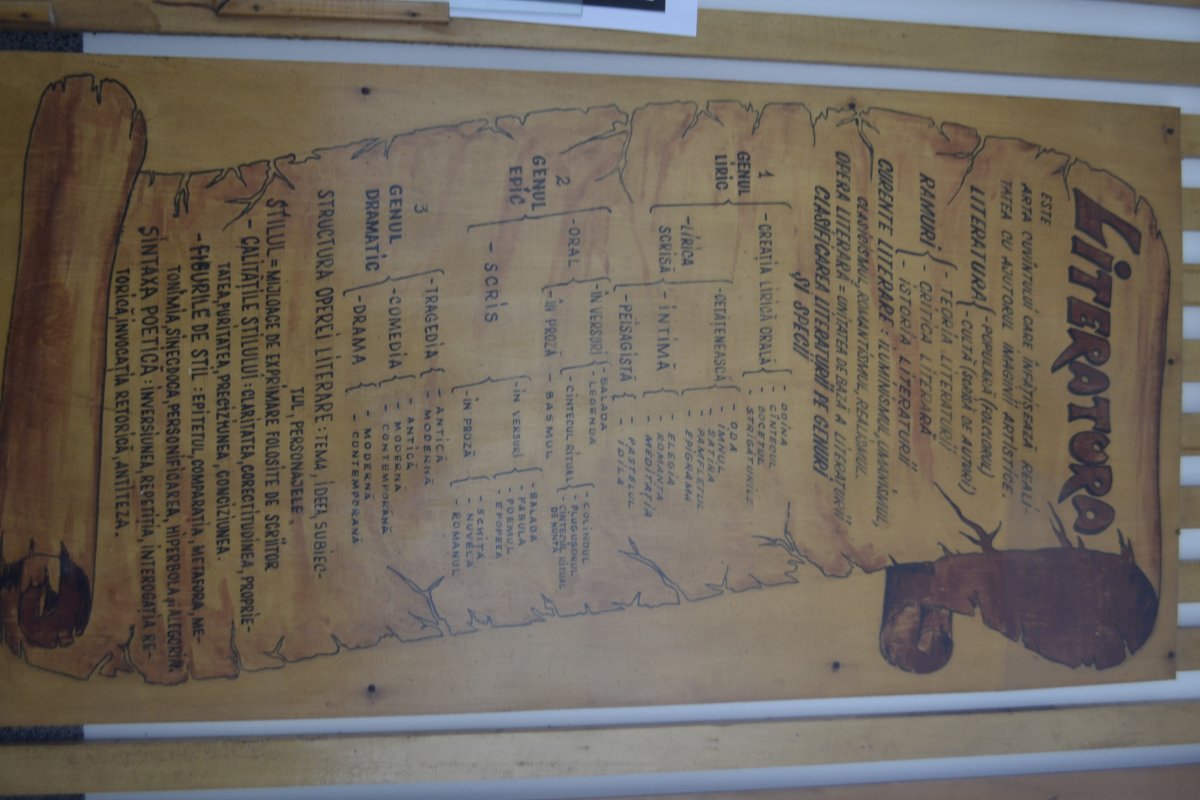 LITERATURA
ESTE
ARTA CUVÎNTULUI CARE ÎNFĂȚIȘEAZĂ REALI-
TATEA CU AJUTORUL IMAGINII ARTISTICE.
LITERATURA
- POPULARĂ (FOLCLORUL)
- CULTĂ (SCRISĂ DE AUTORI)
RAMURI
- TEORIA LITERATURII
- CRITICA LITERARĂ
- ISTORIA LITERATURII
CURENTE LITERARE - ILUMINISMUL, UMANISMUL,
CLASICISMUL, ROMANTISMUL, REALISMUL.
OPERA LITERARĂ = UNITATEA DE BAZĂ A LITERATURII
CLASIFICAREA LITERATURII PE GENURI
ȘI SPECII
1
GENUL
LIRIC
- CREAȚIA LIRICĂ ORALĂ
- DOINA
- CÎNTECUL
- BOCETUL
- STRIGĂTURILE
- LIRICA
SCRISĂ
- CETĂȚENEASCĂ
- ODA
- IMNUL
- SATIRA
- PAMFLETUL
- EPIGRAMA
- INTIMĂ
- ELEGIA
- ROMANȚA
- MEDITAȚIA
- PEISAGISTĂ
- PASTELUL
- IDILA
2
GENUL
EPIC
- ORAL
- ÎN VERSURI
- BALADA
- LEGENDA
- CÎNTECUL RITUAL
- COLINDUL
- PLUGUȘORUL
- CÎNTECUL RITUAL
DE NUNTĂ
ÎN PROZĂ - BASMUL
- SCRIS
- ÎN VERSURI
- BALADA
- FABULA
- POEMUL
- EPOPEEA
- ÎN PROZĂ
- SCHIȚA
- NUVELA
- ROMANUL
3
GENUL
DRAMATIC
- TRAGEDIA
- ANTICĂ
- MODERNĂ
- COMEDIA
- ANTICĂ
- MODERNĂ
- CONTEMPORANĂ
- DRAMA
- MODERNĂ
- CONTEMPORANĂ
STRUCTURA OPEREI LITERARE : TEMA, IDEEA, SUBIEC-
TUL, PERSONAJELE
STILUL = MIJLOACE DE EXPRIMARE FOLOSITE DE SCRIITOR
- CALITĂȚILE STILULUI : CLARITATEA, CORECTITUDINEA, PROPRIE-
TATEA, PURITATEA, PRECIZIUNEA, CONCIZIUNEA.
- FIGURILE DE STIL : EPITETUL, COMPARAȚIA, METAFORA, ME-
TONIMIA, SINECDOCA, PERSONIFICAREA, HIPERBOLA ȘI ALEGORIA.
SINTAXA POETICĂ : INVERSIUNEA, REPETIȚIA, INTEROGAȚIA RE-
TORICĂ, INVOCAȚIA RETORICĂ, ANTITEZA.